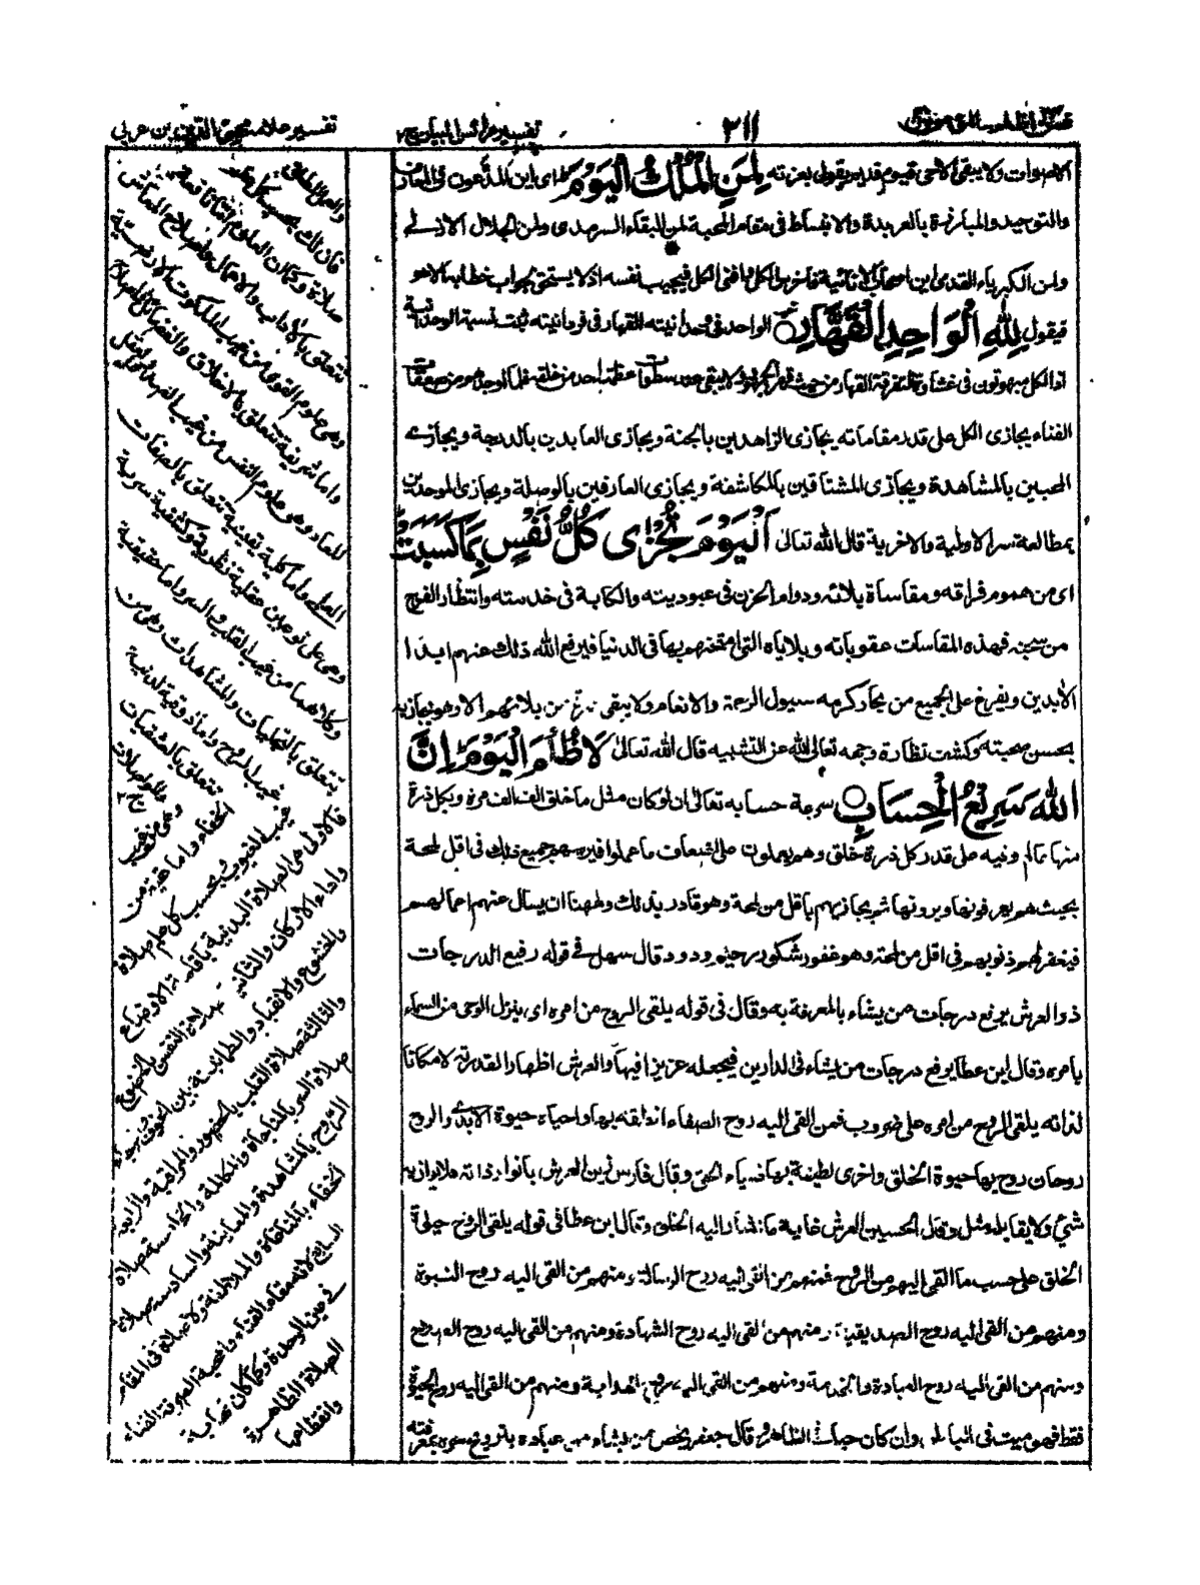 ٣١١
تفسير عرائس البيان ج٢
تفسير علامة محي الدين بن عربي
الاموات ولا يبقى الا حي قيوم قديم يقول بعزته لِمَنِ الْمُلْكُ الْيَوْمَ اى اين المدّعون فى المعارف
والتوحيد والمبارزة بالعربدة والانبساط فى مقام المحبة لمن البقاء السرمدى ولمن الجلال الازلى
ولمن الكبرياء القدمى اين اصحاب الانائية فاخرس الكل وافنى الكل فيجيب نفسه اذ لا يستحق بجواب خطابه الا هو
فيقول لِلّٰهِ الْوَاحِدِ الْقَهَّارِ الواحد فى وحدانيته القهار فى فردانيته
اذ الكل مبهوتون فى غشاوة التفرقة القهار من حيث لا يبقى عند سطوات عظمته احد من خلقه
الفناء يجازى الكل على قدر مقاماته يجازى الزاهدين بالجنة ويجازى العابدين بالدرجة ويجازى
المحبين بالمشاهدة ويجازى المشتاقين بالمكاشفة ويجازى العارفين بالوصلة ويجازى الموحدين
بمطالعة سر الاولية والاخرية قال الله تعالى اَلْيَوْمَ تُجْزٰى كُلُّ نَفْسٍ بِمَا كَسَبَتْ
اى من هموم فراقه ومقاساة بلائه ودوام الحزن فى عبوديته والكابة فى خدمته وانتظار الفرج
من سجنه فهذه المقاسات عقوباته وبلاياه التى امتحنهم بها فى الدنيا فيرفع الله ذلك عنهم ابدا
الابدين ويفرغ على الجميع من بحار كرمه سيول الرحمة والانعام ولا يبقى من بلائهم الا وهو يجازيه
بحسن صحبته وكشف نظارة وجهه تعالى الله عن التشبيه قال الله تعالى لَا ظُلْمَ الْيَوْمَ اِنَّ
اللّٰهَ سَرِيْعُ الْحِسَابِ سرعة حسابه تعالى ان لو كان مثل ما خلق الف الف مرة وبكل ذرة
منها عالم وفيه على قدر كل ذرة خلق وهم يعملون على اضعاف ما عملوا فيسبهم جميع ذلك فى اقل لمحة
بحيث هم يعرفونها ويرونها ثم يجازيهم باقل من لمحة وهو قادر بذلك ولهنا ان يسال عنهم اعمالهم
فيغفر لهم ذنوبهم فى اقل من لمحة وهو غفور شكور رحيم ودود قال سهل فى قوله رفيع الدرجات
ذو العرش يرفع درجات من يشاء بالمعرفة به وقال فى قوله يلقى الروح من امره اى ينزل الوحى من السماء
بامره وقال ابن عطا يرفع درجات من يشاء فى الدارين فيجعله عزيزا فيها والعرش اظهار القدرته لا مكانا
لذاته يلقى الروح من امره على ضروب فمن القى اليه روح الصفاء انطقه بها واحياه حيوة الابد والروح
روحان روح بها حيوة الخلق واخرى لطيفة بها ضياء الحق وقال فارس زين العرش بانوار ذاته فلا يوازيه
شئ ولا يقابله مثل وقال الحسين العرش غاية ما اشار اليه الخلق وقال ابن عطا فى قوله يلقى الروح حيوة
الخلق على حسب ما القى اليهم من الروح فمنهم من القى اليه روح الرسالة ومنهم من القى اليه روح النبوة
ومنهم من القى اليه روح الصديقية ومنهم من القى اليه روح الشهادة ومنهم من القى اليه روح الصلاح
ومنهم من القى اليه روح العبادة والخدمة ومنهم من القى اليه روح الهداية ومنهم من القى اليه روح الحيوة
فقط فهو ميت فى الباطن وان كان حيا فى الظاهر وقال جعفر يخص من يشاء من عباده بترويح سره بمعرفته
فان لك بحسب كل
صلاة وكما ان العلوم النافعة
تتعلق بالاداب والاعمال واصلاح المعاش
وهى علوم القوى من غيب الملكوت الارضية
واما شريفة تتعلق بالاخلاق والفضائل واصلاح
المعاد وهو علوم النفس من غيب
العقلى واما كلية يقينية تتعلق بالصفات
وهى على نوعين عقلية نظرية وكشفية سرية
وكلاهما من غيب القلب والسر واما حقيقية
تتعلق بالتجليات والمشاهدات وهى من
غيب الروح واما ذوقية لدنية
تتعلق بالعشقيات
الخفاء واما حقية من
غيب الغيوب بحسب كل علم صلاة
فالاولى هى الصلاة البدنية باقامة الاوضاع
واداء الاركان والثانية صلاة النفس بالخضوع
والخشوع والانقياد والطمانينة بين الخوف والرجاء
والثالثة صلاة القلب بالحضور والمراقبة والرابعة
صلاة السر بالمناجاة والمكالمة والخامسة صلاة
الروح بالمشاهدة والمعاينة والسادسة صلاة
الخفاء بالمناغاة والملاطفة ولا صلاة فى المقام
السابع لانه مقام الفناء والمحبة الصرفة الفناء
فى عين الوحدة وكما كان نهاية
الصلاة الظاهرة
وانقطاعها